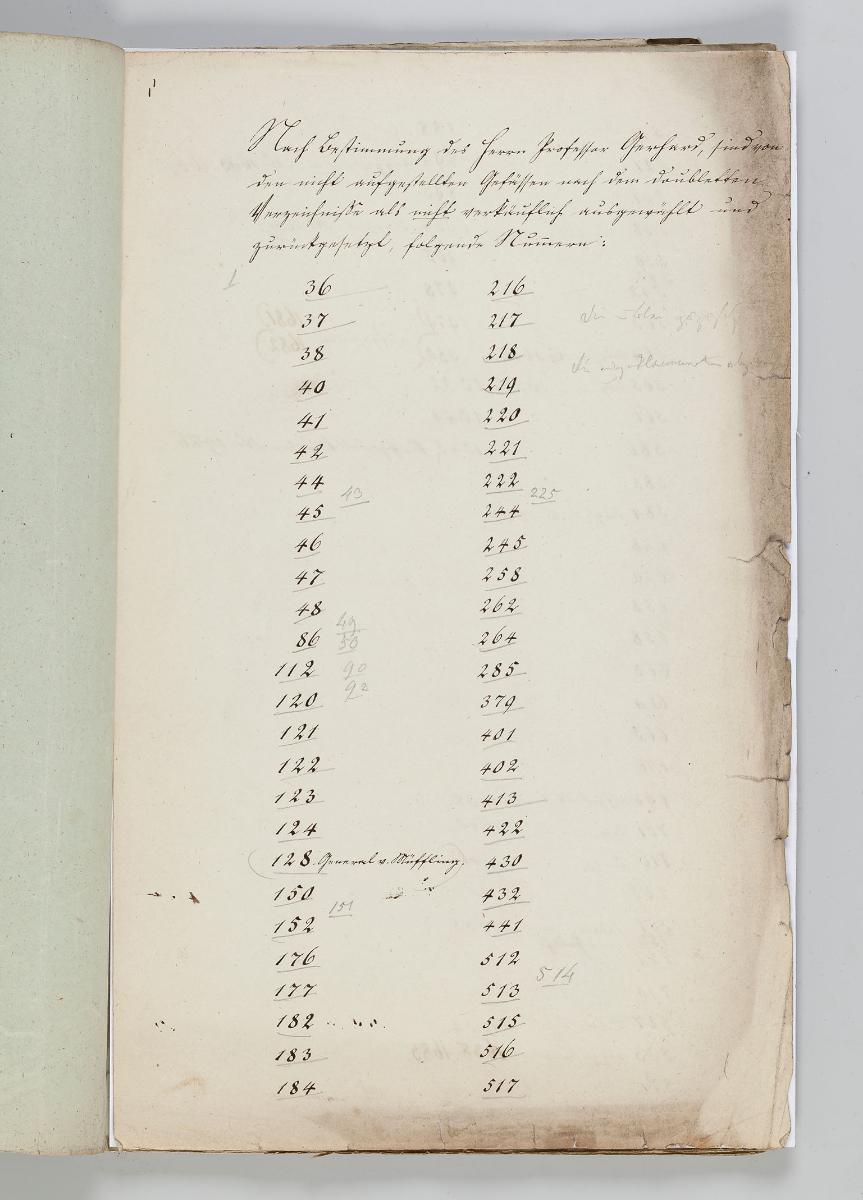 Nach Bestimmung des Herrn Professor Gerhard, sind von
den nicht aufgestellten Gefässen nach dem doubletten
Verzeichnisse als nicht verkäuflich ausgewählt und
zurückgesetzt, folgende Numern:
1
36
37
38
40
41
42
44
43
45
46
47
48
49
50
86
112
90
92
120
121
122
123
124
128. General v. Müffling.
150
151
152
176
177
182
183
184
216
217
218
219
220
221
222
225
244
245
258
262
264
285
379
401
402
413
422
430
432
441
512
514
513
515
516
517
die
die